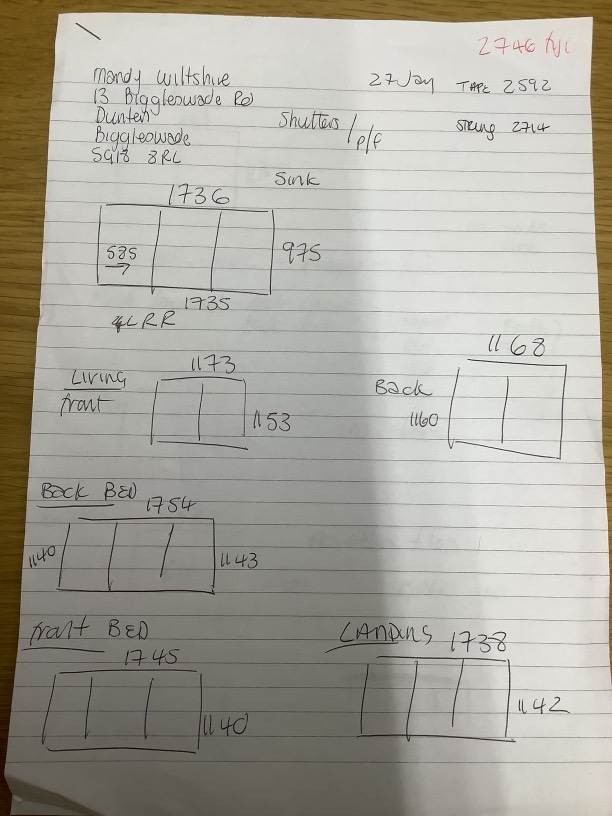 2746
Mandy Wiltshire
27 Jay TAPE 2592
13 Biggleswade Rd
Dunton
Shutters / p/f
String 2714
Biggleswade
SG18 8RL
Sink
1736
585
975
1735
LRR
1168
1173
Living
front
1153
Back
1160
Back BED
1754
1140
1143
front BED
1745
1140
LANDING
1738
1142